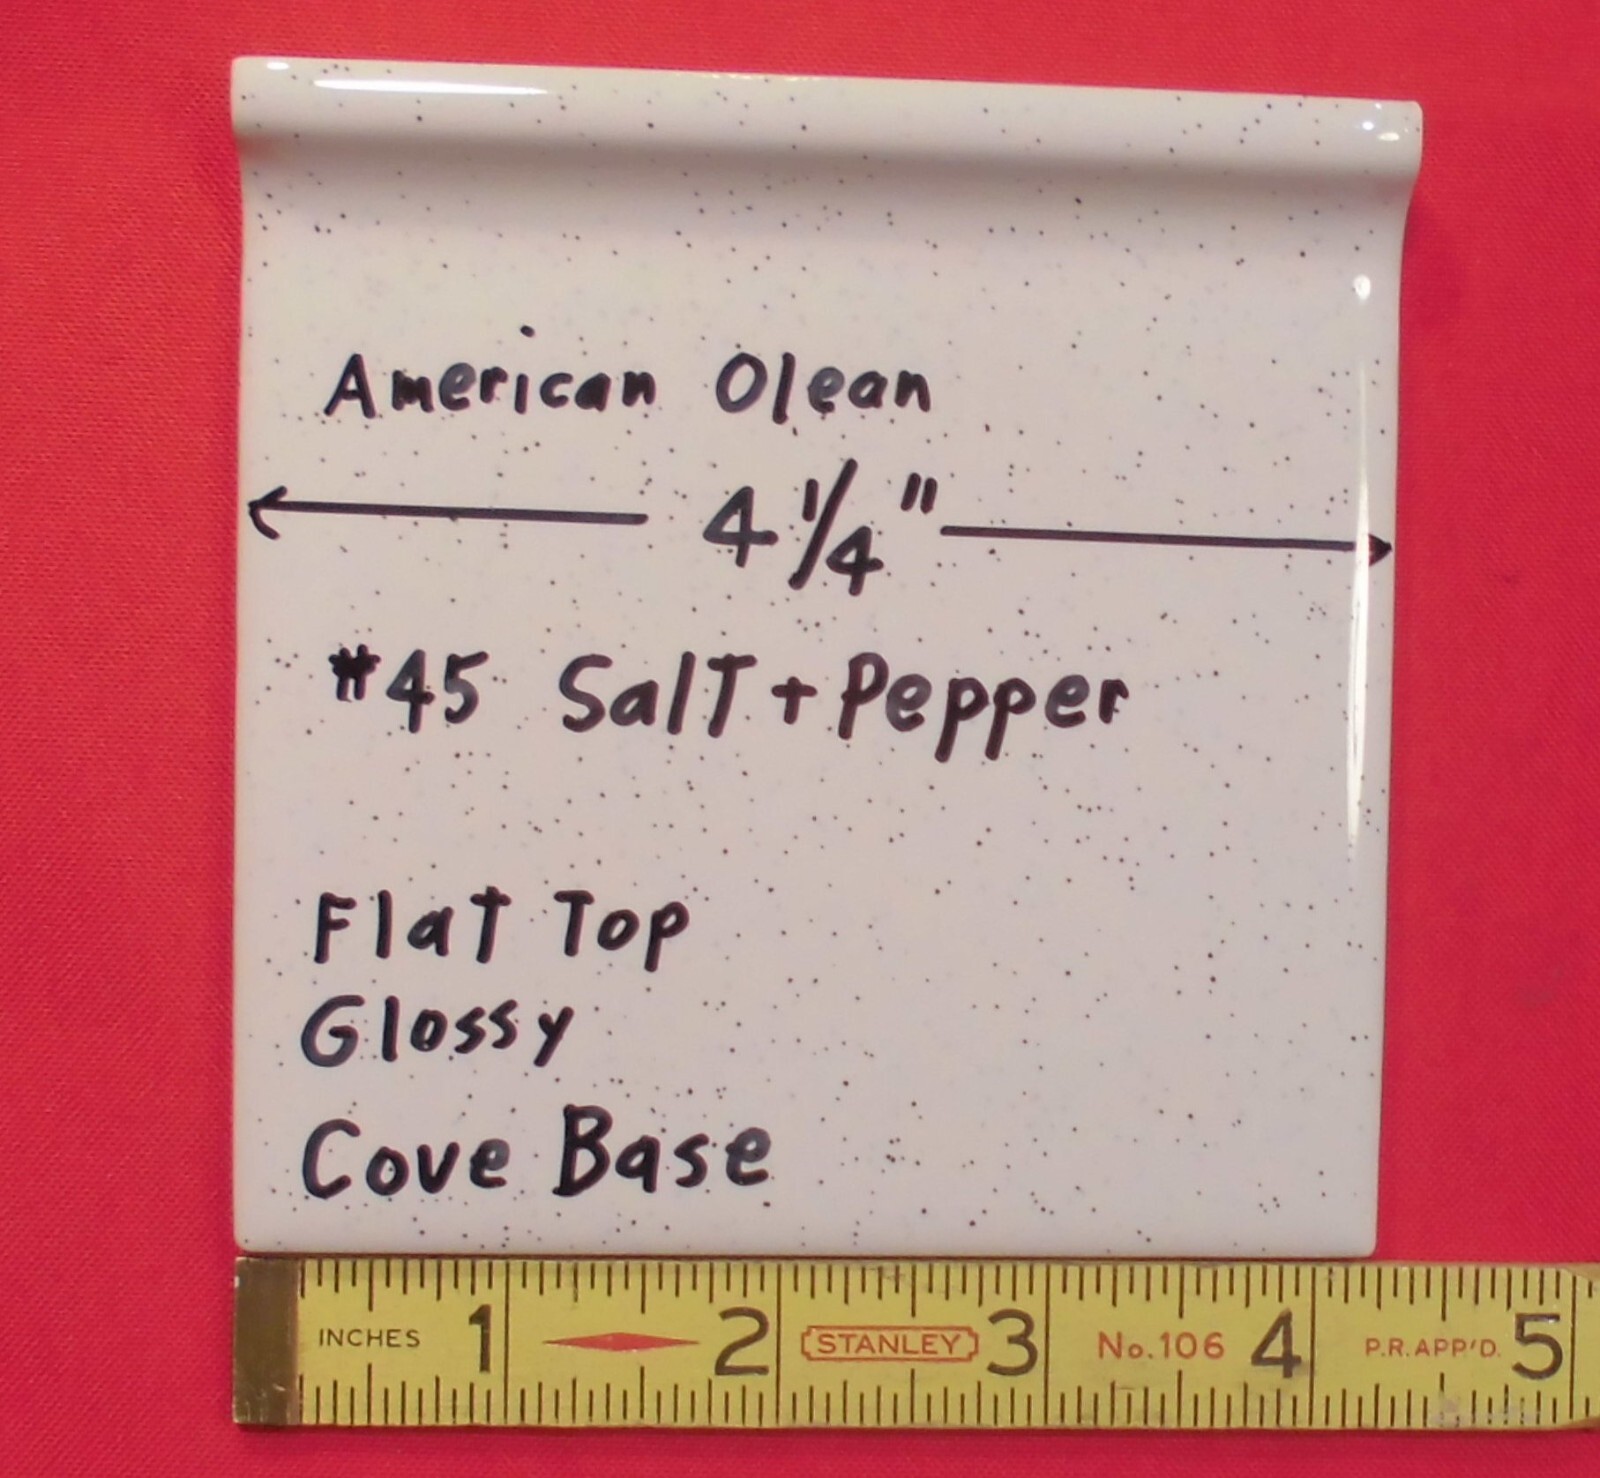 American Olean
4 1/4"
#45 Salt + Pepper
Flat Top
Glossy
Cove Base
INCHES 1 2 STANLEY 3 No.106 4 P.R. APP'D. 5